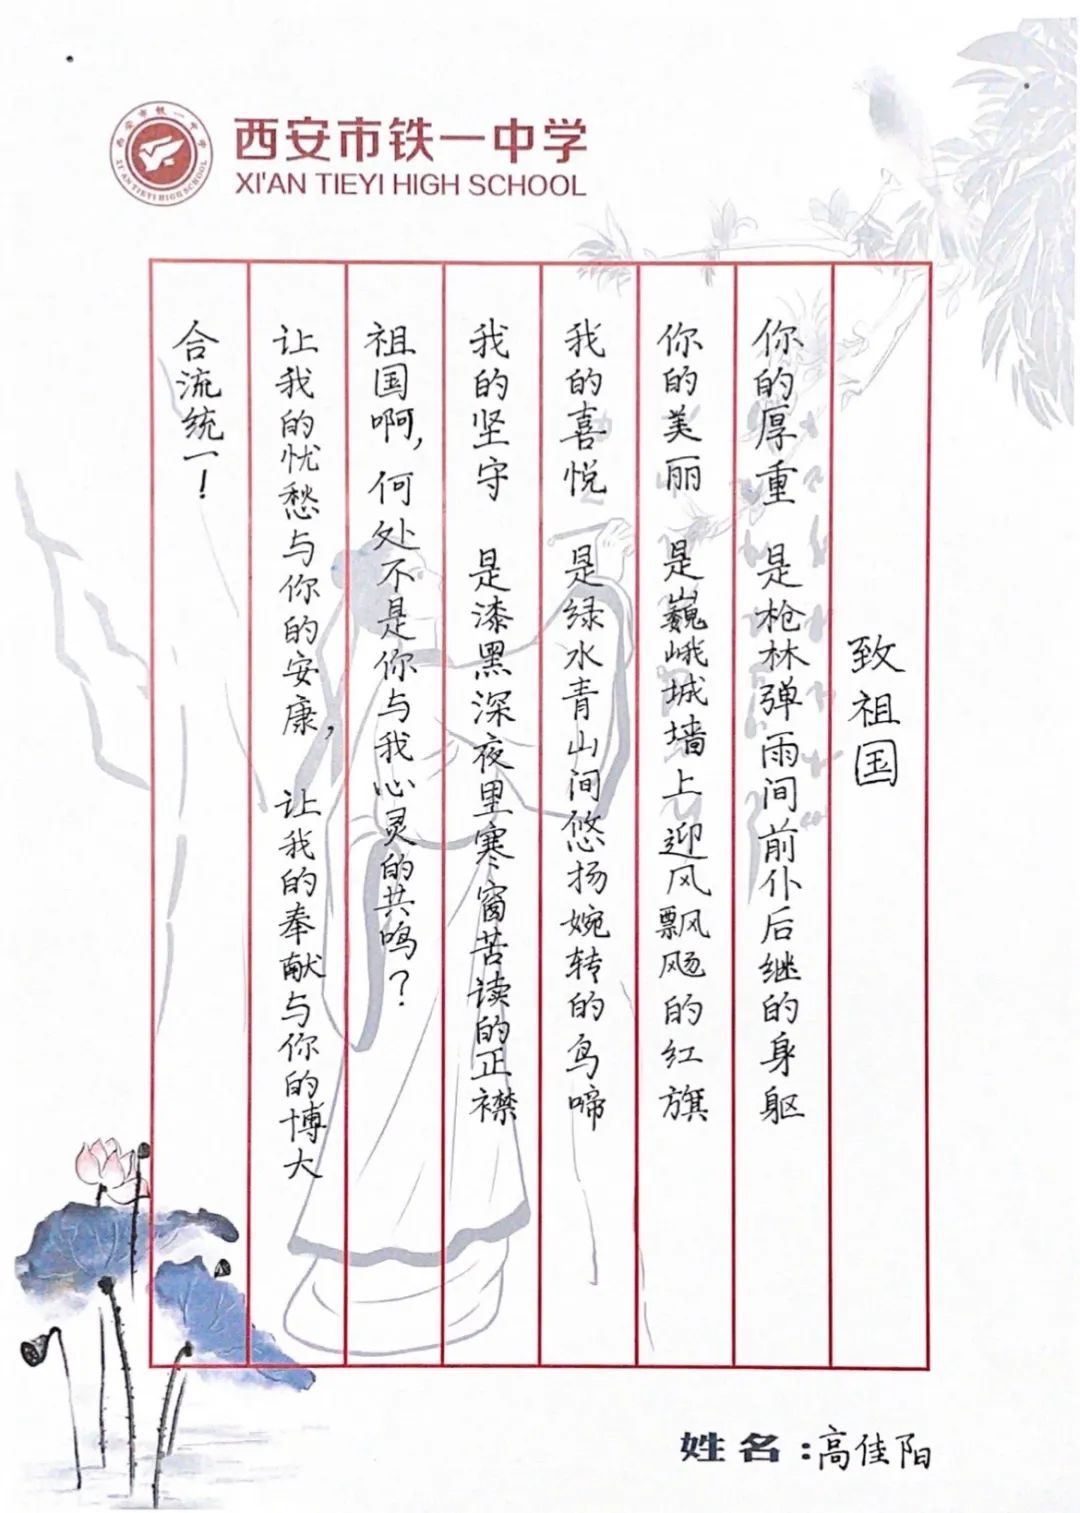 西安市铁一中学
XI'AN TIEYI HIGH SCHOOL
西安市铁一中学
XI'AN TIEYI HIGH SCHOOL
致祖国
你的厚重 是枪林弹雨间前仆后继的身躯
你的美丽 是巍峨城墙上迎风飘飏的红旗
我的喜悦 是绿水青山间悠扬婉转的鸟啼
我的坚守 是漆黑深夜里寒窗苦读的正襟
祖国啊,何处不是你与我心灵的共鸣?
让我的忧愁与你的安康, 让我的奉献与你的博大
合流统一!
姓名:高佳阳